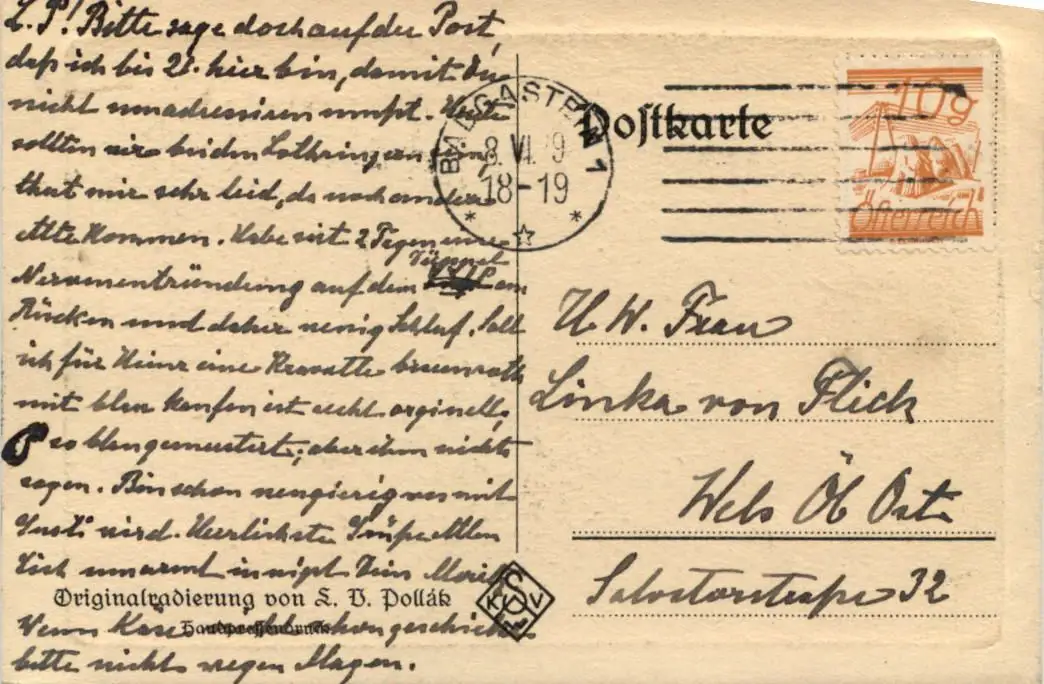 L. P! Bitte sage doch auf der Post,
daß ich bis 21. hier bin, damit Du
nicht umadressieren mußt. Heute
sollten wir bei den Lothringern
that mir sehr leid, da noch andere
Alte kommen. Habe seit 2 Tagen eine
Nervenentzündung auf dem Tüppel am
Rücken und daher wenig Schlaf. Soll
ich für Heinz eine Kravatte braunroth
mit blau kaufen ist recht orginell,
so blau gemustert, aber ihm nichts
sagen. Bin schon neugierig was mit
Gusti wird. Herzlichste Grüße Allen
Dich umarmt innigst Dein
Wenn Käse schon geschickt
bitte nichts wegen Magen.
BAD GASTEIN 1
8. VI. 9
18-19
Postkarte
10g
Österreich
H W. Frau
Linka von Flick
Wels Öb Öst
Salvatorstraße 32
Originalradierung von L. V. Pollák
Handpressendruck
K V